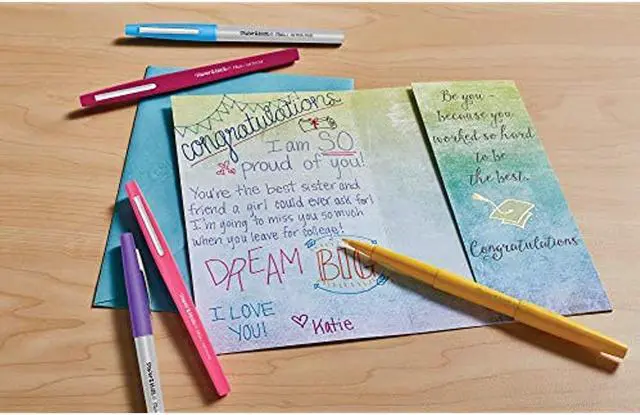 Paper Mate Flair
Paper Mate Flair
congratulations
I am SO
proud of you!
You're the best sister and
friend a girl could ever ask for!
I'm going to miss you so much
when you leave for college!
DREAM BIG
I LOVE
YOU!
Katie
Be you -
because you
worked so hard
to be
the best.
Congratulations
Paper Mate
Paper Mate